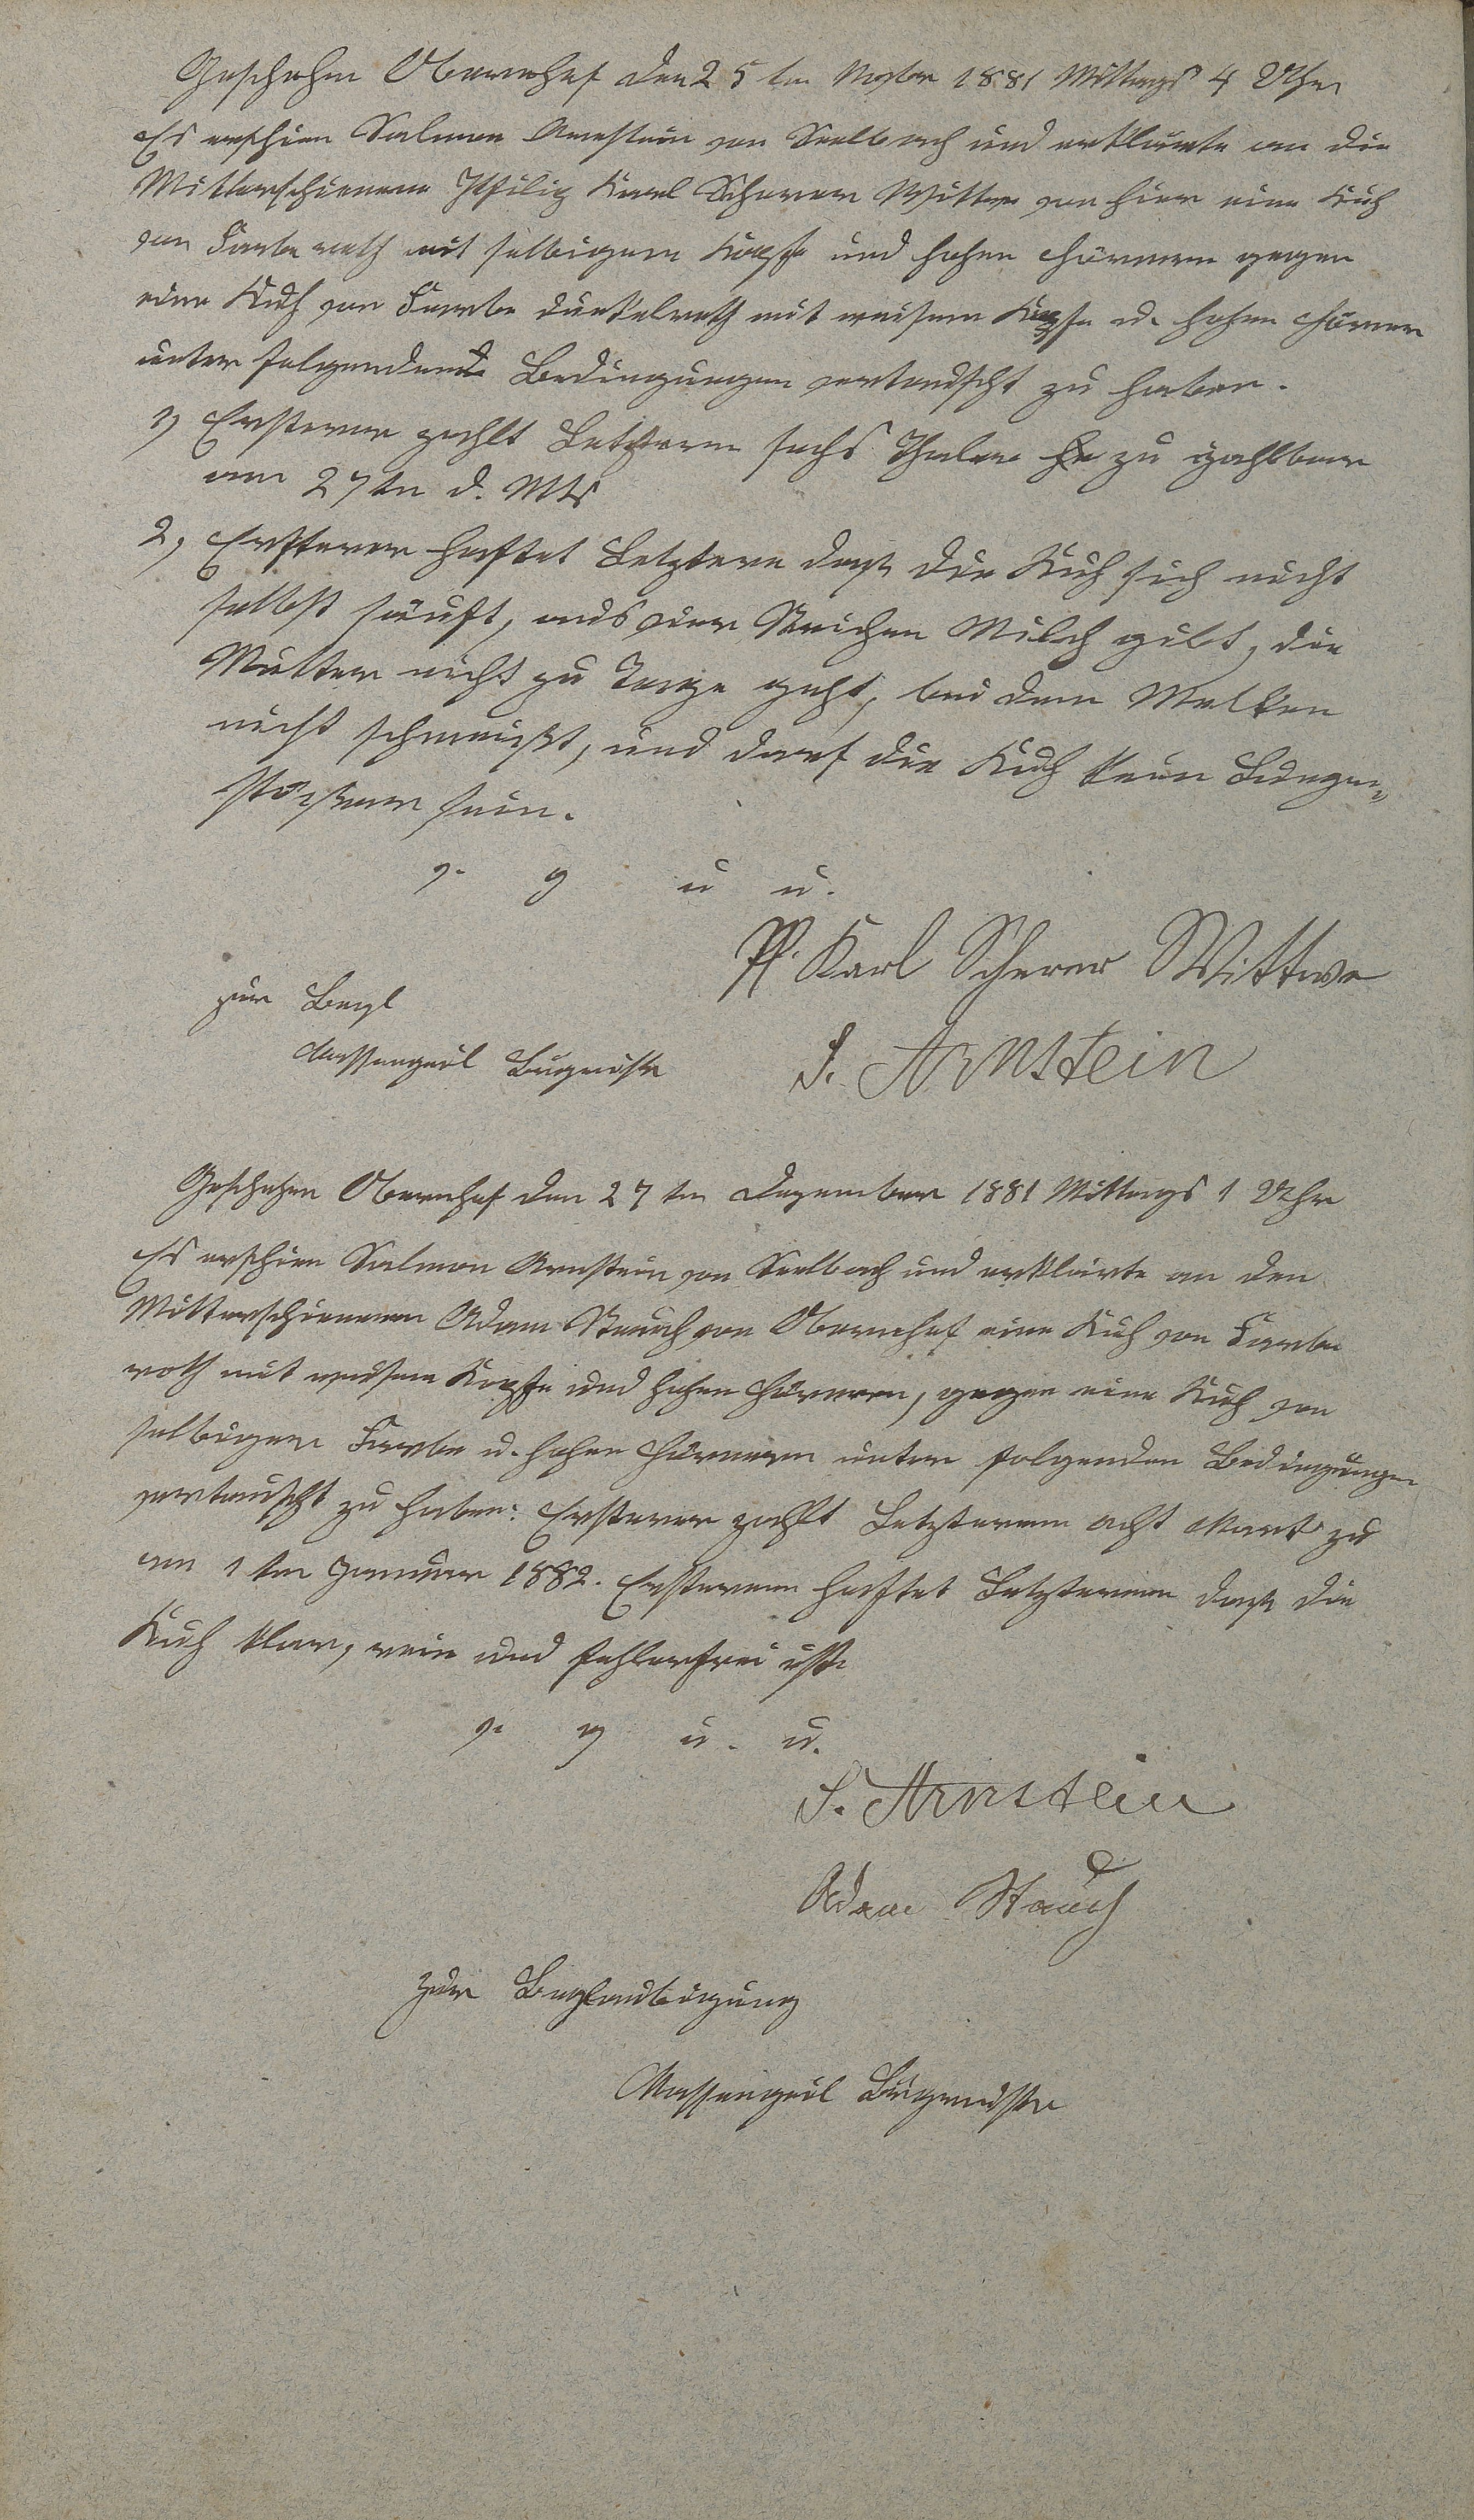 Geschehen Obernhof den 25 ten Novber 1881 Mittags 4 Uhr
Es erschien Salmon Arnstein von Seelbach und erklärte an die
Miterschienene Karl Scherer Wittwe von hier eine Kuh
von Farbe roth mit selbigem Kopfe und hohen Hörnern gegen
eine Kuh von Farbe dunkelroth mit weisem Kopfe u. hohen Hörner
unter folgenden Bedingungen vertauscht zu haben.
1) Ersterer zahlt Letzterer sechs Thaler zu zahlbar
am 27ten d. Mts
2, Ersterer haftet Letztere daß die Kuh sich nicht
selbst säuft, aus vier Strichen Milch gibt, die
Mutter nicht zu Tage geht, bei dem Melken
nicht schmeißt, und darf die Kuh kein Lungen-
stößer sein.
v. g u u.
Pf. Karl Scherer Wittwe
zur Begl
Massengeil Bürgmstr
S. Arnstein
Geschehen Obernhof den 27 ten Dezember 1881 Mittags 1 Uhr
Es erschien Salmon Arnstein von Seelbach und erklärte an den
Miterschienenen Adam Stauch von Obernhof eine Kuh von Farbe
roth mit weisem Kopfe und hohen Hörnern, gegen eine Kuh von
selbiger Farbe u. hohen Hörnern unter folgenden Bedingungen
vertauscht zu haben: Ersterer zahlt Letzterem acht Mark zu
am 1 ten Januar 1882. Ersterer haftet Letzterem daß die
Kuh klar, rein und fehlerfrei ist.
v. g u. u.
S. Arnstein
Adam Stauch
Zur Beglaubigung
Massengeil Bürgmstr